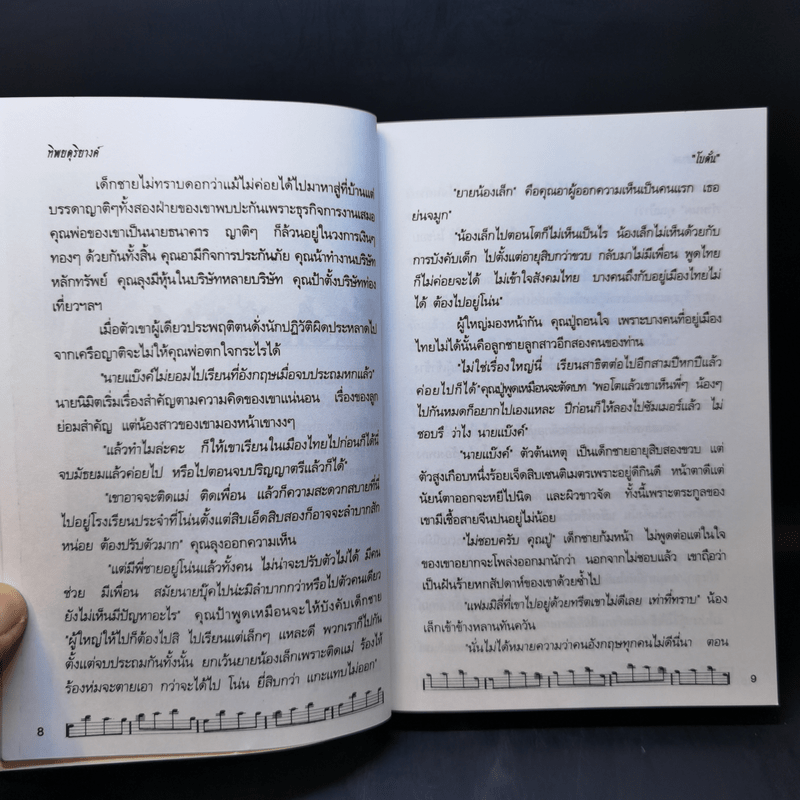 ทิพยดุริยางค์
เด็กชายไม่ทราบดอกว่าแม้ไม่ค่อยได้ไปมาหาสู่ที่บ้านแต่
บรรดาญาติๆทั้งสองฝ่ายของเขาพบปะกันเพราะธุรกิจการงานเสมอ
คุณพ่อของเขาเป็นนายธนาคาร ญาติๆ ก็ล้วนอยู่ในวงการเงินๆ
ทองๆ ด้วยกันทั้งสิ้น คุณอามีกิจการประกันภัย คุณน้าทำงานบริษัท
หลักทรัพย์ คุณลุงมีหุ้นในบริษัทหลายบริษัท คุณป้าตั้งบริษัทท่อง
เที่ยวฯลฯ
เมื่อตัวเขาผู้เดียวประพฤติตนดั่งนักปฏิวัติผิดประหลาดไป
จากเครือญาติจะไม่ให้คุณพ่อตกใจกระไรได้
"นายแบ๊งค์ไม่ยอมไปเรียนที่อังกฤษเมื่อจบประถมหกแล้ว"
นายนิมิตเริ่มเรื่องสำคัญตามความคิดของเขาแน่นอน เรื่องของลูก
ย่อมสำคัญ แต่น้องสาวของเขามองหน้าเขางงๆ
"แล้วทำไมล่ะคะ ก็ให้เขาเรียนในเมืองไทยไปก่อนก็ได้นี่
จบมัธยมแล้วค่อยไป หรือไปตอนจบปริญญาตรีแล้วก็ได้"
"เขาอาจจะติดแม่ ติดเพื่อน แล้วก็ความสะดวกสบายที่นี่
ไปอยู่โรงเรียนประจำที่โน่นตั้งแต่สิบเอ็ดสิบสองก็อาจจะลำบากสัก
หน่อย ต้องปรับตัวมาก" คุณลุงออกความเห็น
"แต่มีพี่ชายอยู่โน่นแล้วทั้งคน ไม่น่าจะปรับตัวไม่ได้ มีคน
ช่วย มีเพื่อน สมัยนายบุ๊คไปน่ะมิลำบากกว่าหรือไปตัวคนเดียว
ยังไม่เห็นมีปัญหาอะไร" คุณป้าพูดเหมือนจะให้บังคับเด็กชาย
"ผู้ใหญ่ให้ไปก็ต้องไปสิ ไปเรียนแต่เล็กๆ แหละดี พวกเราก็ไปกัน
ตั้งแต่จบประถมกันทั้งนั้น ยกเว้นยายน้องเล็กเพราะติดแม่ ร้องไห้
ร้องห่มจะตายเอา กว่าจะได้ไป โน่น ยี่สิบกว่า แกะแทบไม่ออก"
8
"โบตั๋น"
"ยายน้องเล็ก" คือคุณอาผู้ออกความเห็นเป็นคนแรก เธอ
ย่นจมูก"
"น้องเล็กไปตอนโตก็ไม่เห็นเป็นไร น้องเล็กไม่เห็นด้วยกับ
การบังคับเด็ก ไปตั้งแต่อายุสิบกว่าขวบ กลับมาไม่มีเพื่อน พูดไทย
ก็ไม่ค่อยจะได้ ไม่เข้าใจสังคมไทย บางคนถึงกับอยู่เมืองไทยไม่
ได้ ต้องไปอยู่โน่น"
ผู้ใหญ่มองหน้ากัน คุณปู่ถอนใจ เพราะบางคนที่อยู่เมือง
ไทยไม่ได้นั้นคือลูกชายลูกสาวอีกสองคนของท่าน
"ไม่ใช่เรื่องใหญ่นี่ เรียนสาธิตต่อไปอีกสามปีหกปีแล้ว
ค่อยไปก็ได้"คุณปู่พูดเหมือนจะตัดบท "พอโตแล้วเขาเห็นพี่ๆ น้องๆ
ไปกันหมดก็อยากไปเองแหละ ปีก่อนก็ให้ลองไปซัมเมอร์แล้ว ไม่
ชอบรึ ว่าไง นายแบ๊งค์"
"นายแบ๊งค์" ตัวต้นเหตุ เป็นเด็กชายอายุสิบสองขวบ แต่
ตัวสูงเกือบหนึ่งร้อยเจ็ดสิบเซนติเมตรเพราะอยู่ดีกินดี หน้าตาดีแต่
นัยน์ตาออกจะหยีไปนิด และผิวขาวจัด ทั้งนี้เพราะตระกูลของ
เขามีเชื้อสายจีนปนอยู่ไม่น้อย
"ไม่ชอบครับ คุณปู่" เด็กชายก้มหน้า ไม่พูดต่อแต่ในใจ
ของเขาอยากจะโพล่งออกมานักว่า นอกจากไม่ชอบแล้ว เขาถือว่า
เป็นฝันร้ายหกสัปดาห์ของเขาด้วยซ้ำไป
"แฟมมิลี่ที่เขาไปอยู่ด้วยทรีตเขาไม่ดีเลย เท่าที่ทราบ" น้อง
เล็กเข้าข้างหลานทันควัน
"นั่นไม่ได้หมายความว่าคนอังกฤษทุกคนไม่ดีนี่นา ตอน
9